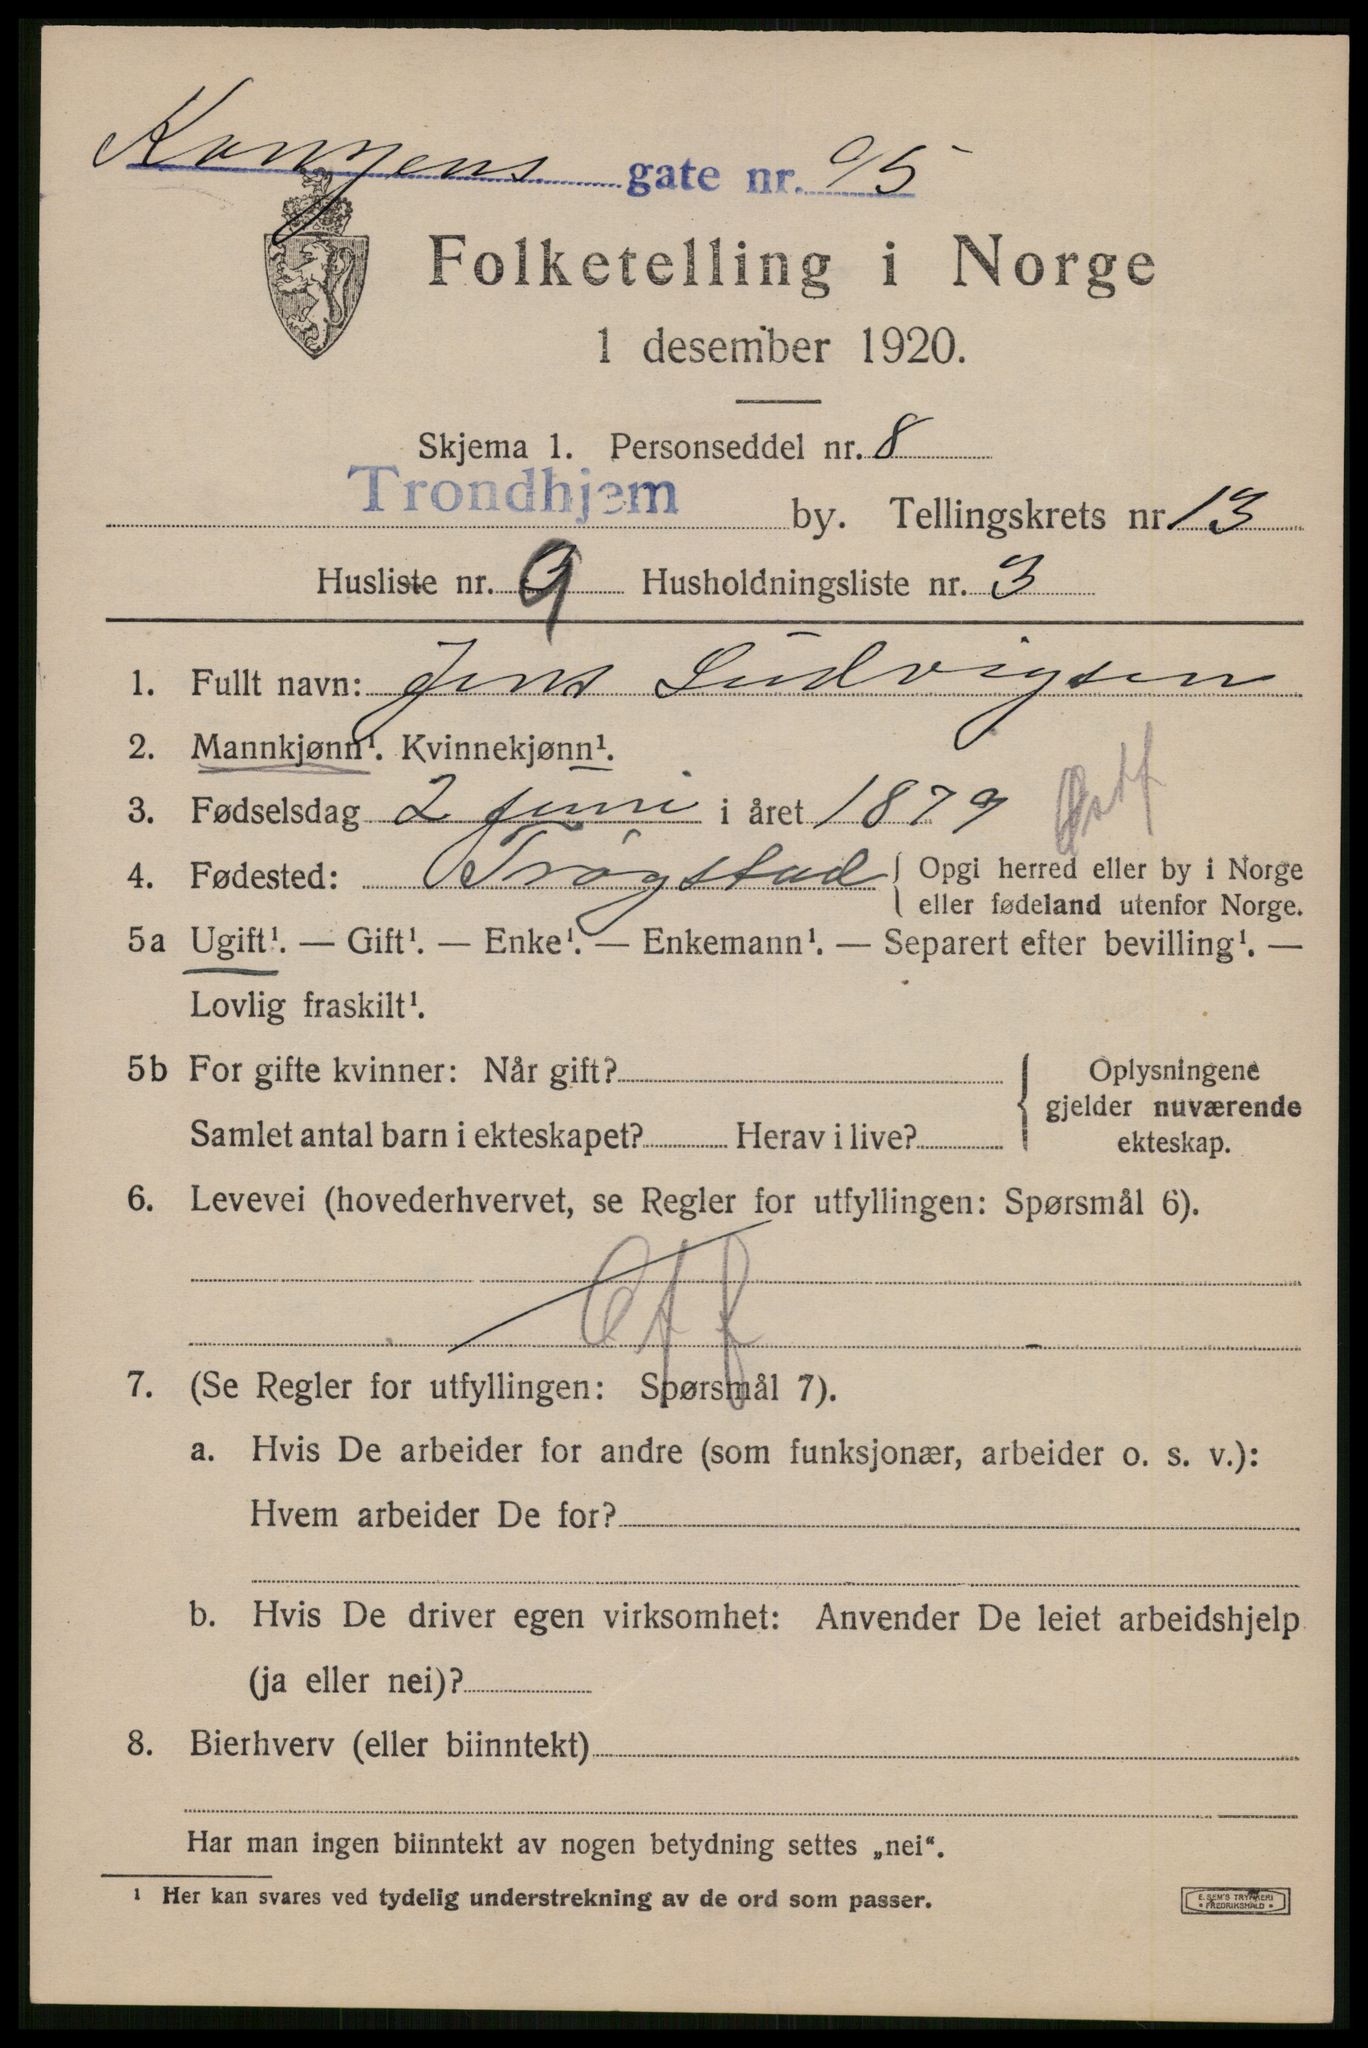 Kongens gate nr. 95
Folketelling i Norge
1 desember 1920.
Skjema 1. Personseddel nr. 8
Trondhjem by. Tellingskrets nr 13
Husliste nr. 9 Husholdningsliste nr. 3
1. Fullt navn: Jens Ludvigsen
2. Mannkjønn¹. Kvinnekjønn¹.
3. Fødselsdag 2 juni i året 1879
Østf
4. Fødested: Trøgstad { Opgi herred eller by i Norge
eller fødeland utenfor Norge.
5a Ugift¹. — Gift¹. — Enke¹. — Enkemann¹. — Separert efter bevilling¹. —
Lovlig fraskilt¹.
5b For gifte kvinner: Når gift?
Samlet antal barn i ekteskapet? Herav i live?
{ Oplysningene
gjelder nuværende
ekteskap.
6. Levevei (hovederhvervet, se Regler for utfyllingen: Spørsmål 6).
7. (Se Regler for utfyllingen: Spørsmål 7).
a. Hvis De arbeider for andre (som funksjonær, arbeider o. s. v.):
Hvem arbeider De for?
b. Hvis De driver egen virksomhet: Anvender De leiet arbeidshjelp
(ja eller nei)?
8. Bierhverv (eller biinntekt)
Har man ingen biinntekt av nogen betydning settes „nei“.
¹ Her kan svares ved tydelig understrekning av de ord som passer.
E. SEM'S TRYKKERI
* FREDRIKSHALD *